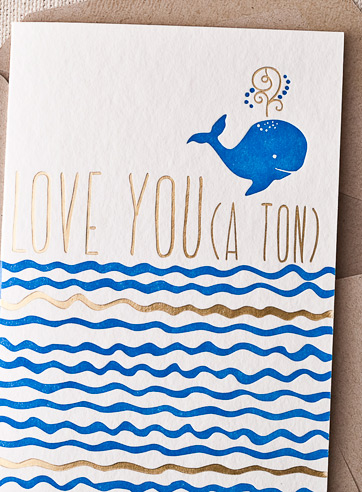 LOVE YOU (A TON)